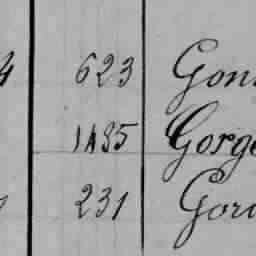 4 623 Gon
1435 Gorg
231 Gor